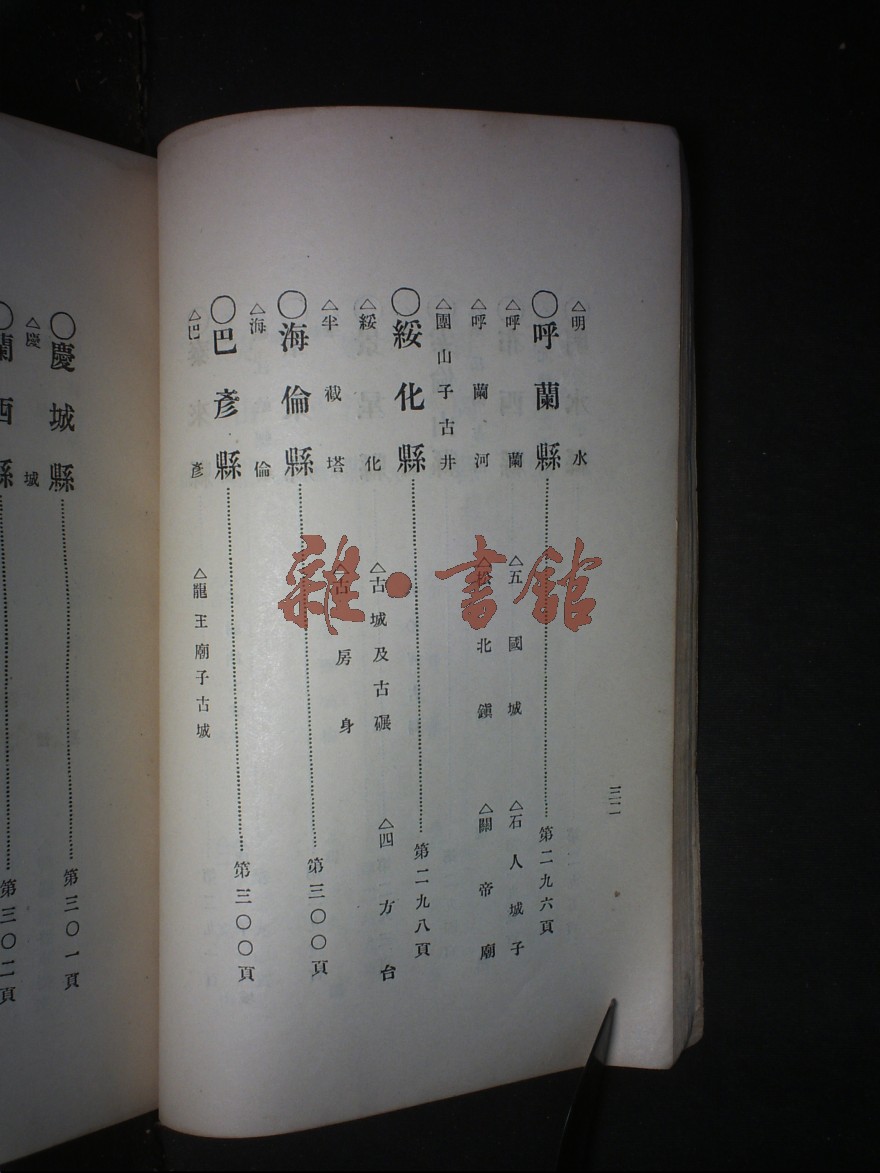 三二
△明水
〇呼蘭縣……第二九六頁
△呼蘭 △五國城 △石人城子
△呼蘭河 △松北鎭 △關帝廟
△團山子古井
〇綏化縣……第二九八頁
△綏化 △古城及古碾 △四方台
△半截塔 △古房身
〇海倫縣……第三〇〇頁
△海倫
〇巴彥縣……第三〇〇頁
△巴彥 △龍王廟子古城
〇慶城縣……第三〇一頁
△慶城
〇蘭西縣……第三〇二頁
雜·書館